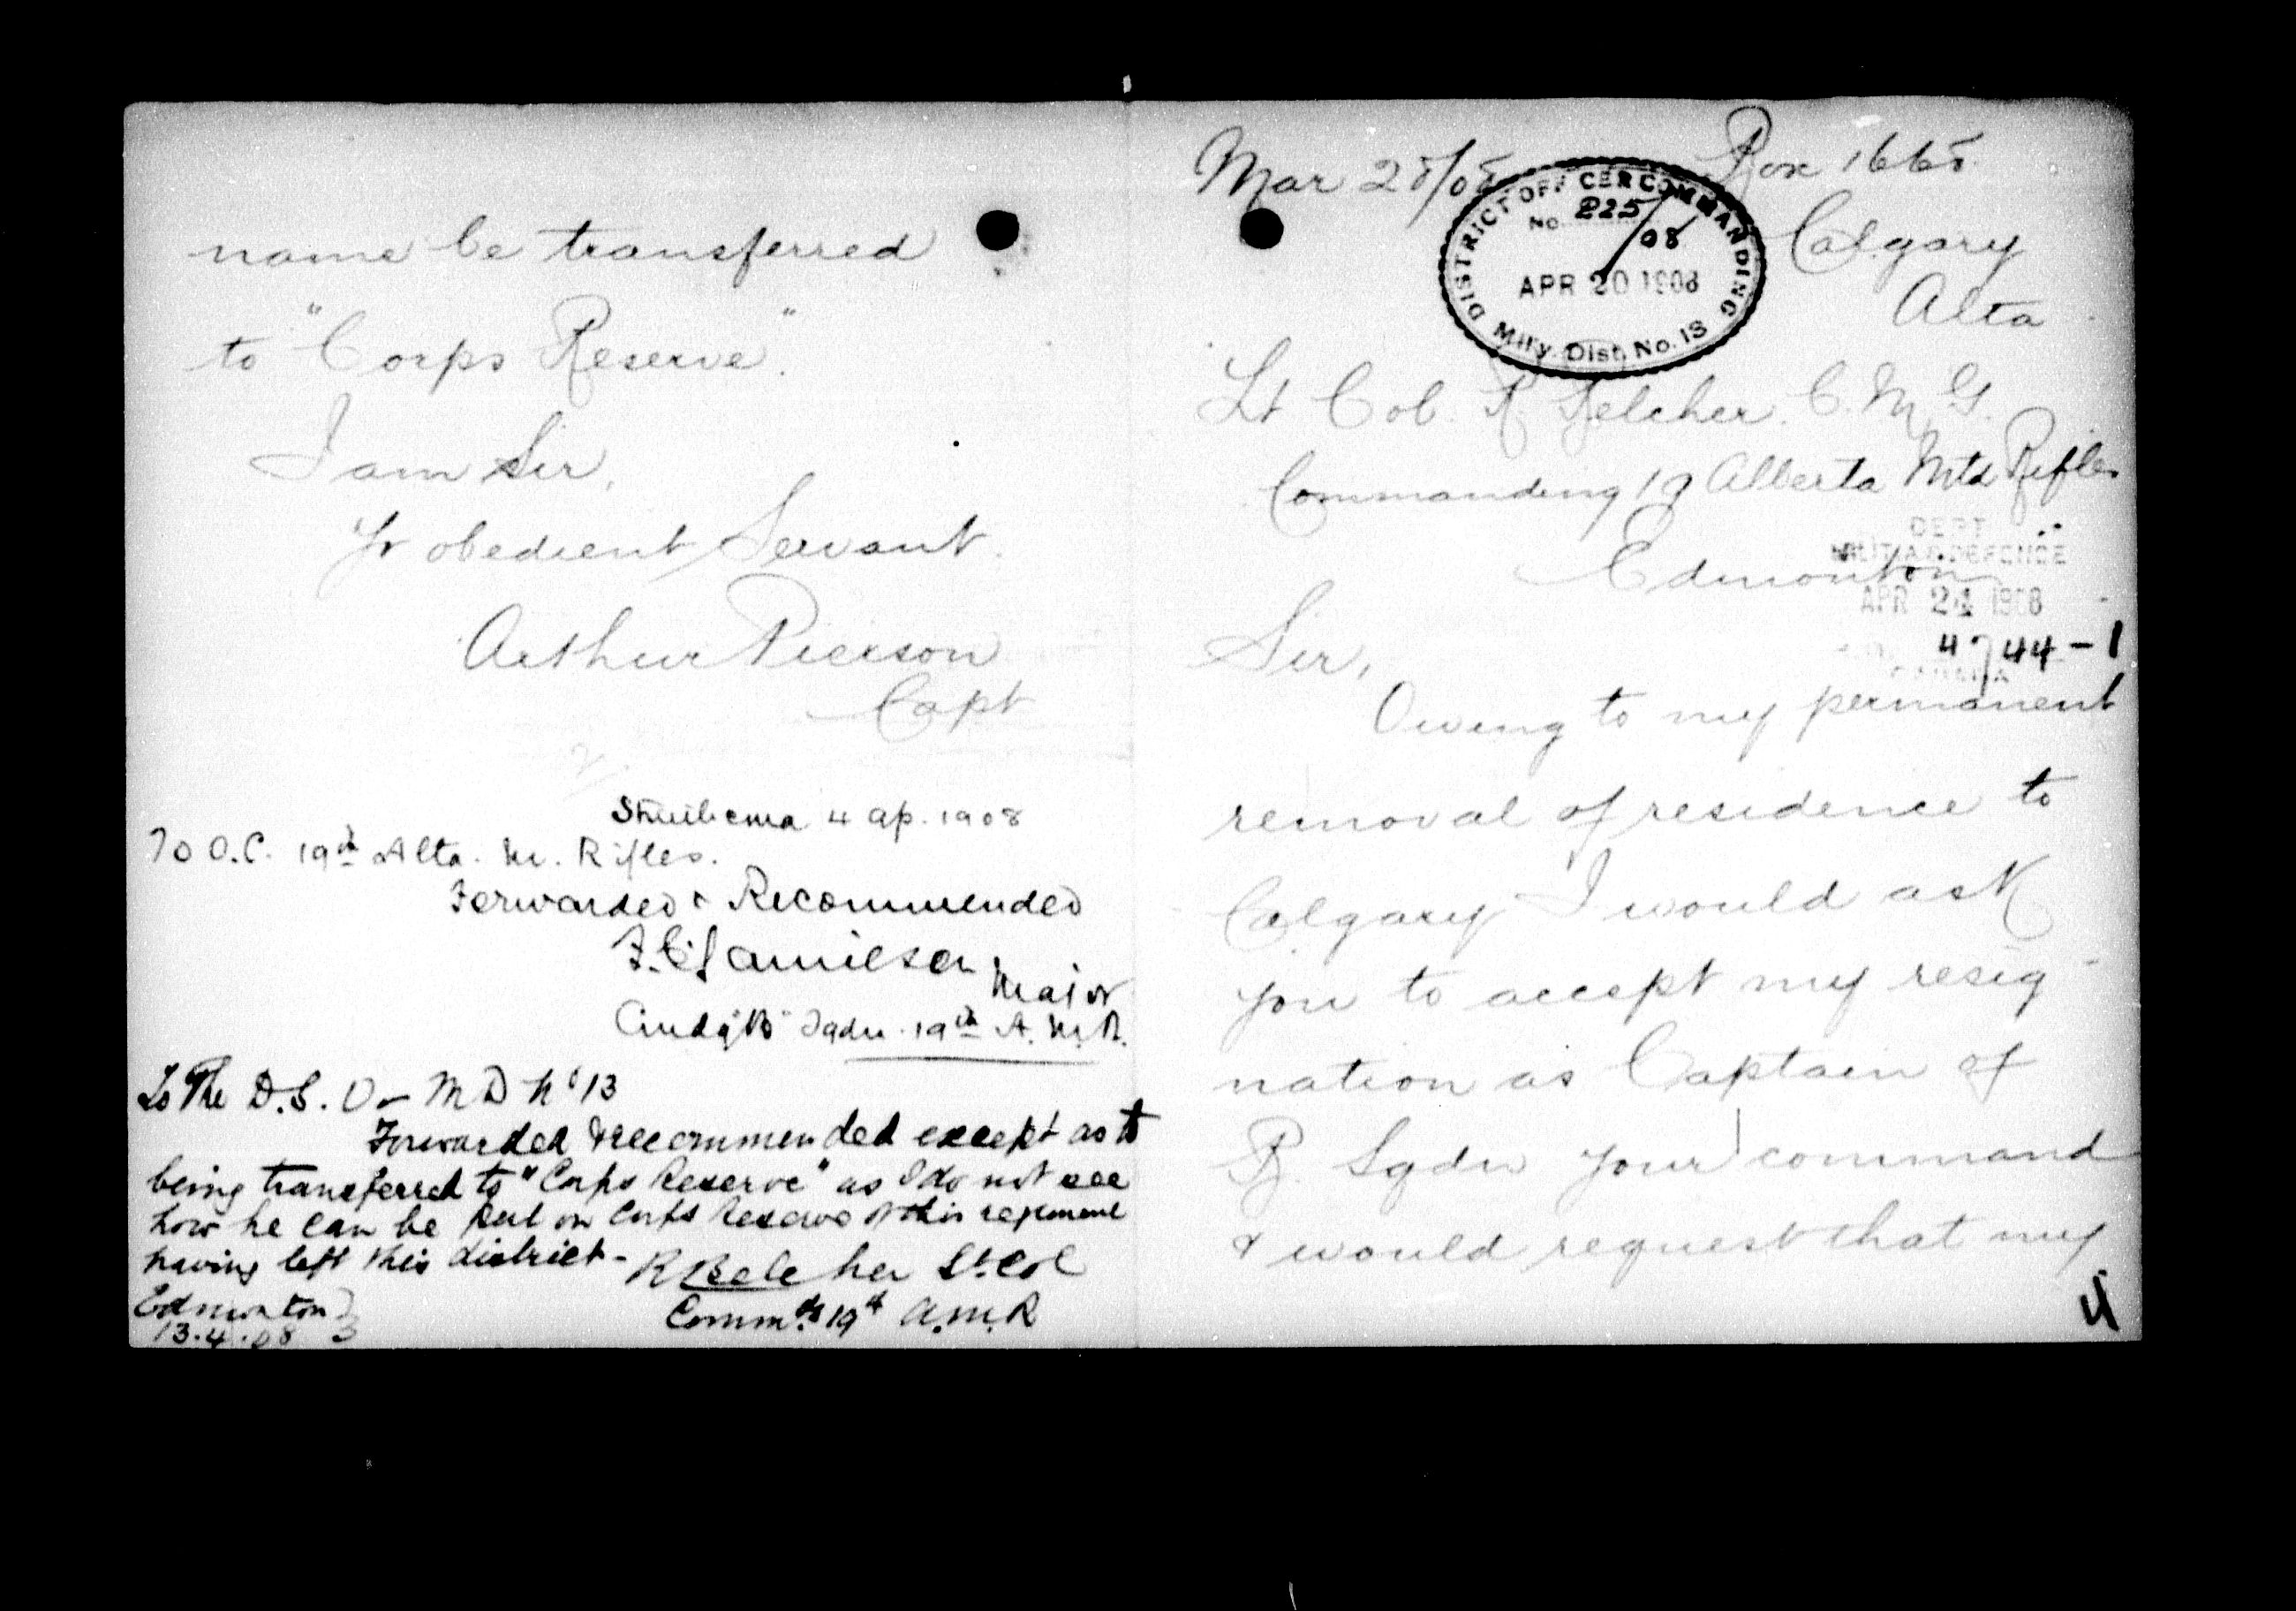 Mar 28/08 Box 1665
Calgary
Alta
DISTRICT OFFICER COMMANDING
No. 225/08
APR 20 1908
Mil'y. Dist. No. 13
Lt Col. R Belcher. C. M. G.
Commanding 19 Alberta Mtd Rifles
Edmonton
DEPT
MILITIA & DEFENCE
APR 24 1908
4744-1
CANADA
Sir,
Owing to my permanent
removal of residence to
Calgary I would ask
you to accept my resig-
nation as Captain of
B. Sqdn your command
& would request that my
4
name be transferred
to "Corps Reserve".
I am Sir,
Yr obedient Servant.
Arthur Pierson
Capt
4 Ap. 1908
To O.C. 19th Alta. M. Rifles.
Forwarded & Recommended
F. C. Jamieson
Major
Cmdg "B" Sqdn. 19th A. M. R.
To The D.S.O - M D No 13
Forwarded & recommended except as to
being transferred to "Corps Reserve" as I do not see
how he can be put on Corps Reserve of this regiment
having left this district -
R Belcher Lt. Col
Commdg 19th A.M.R
Edmonton
13.4.08